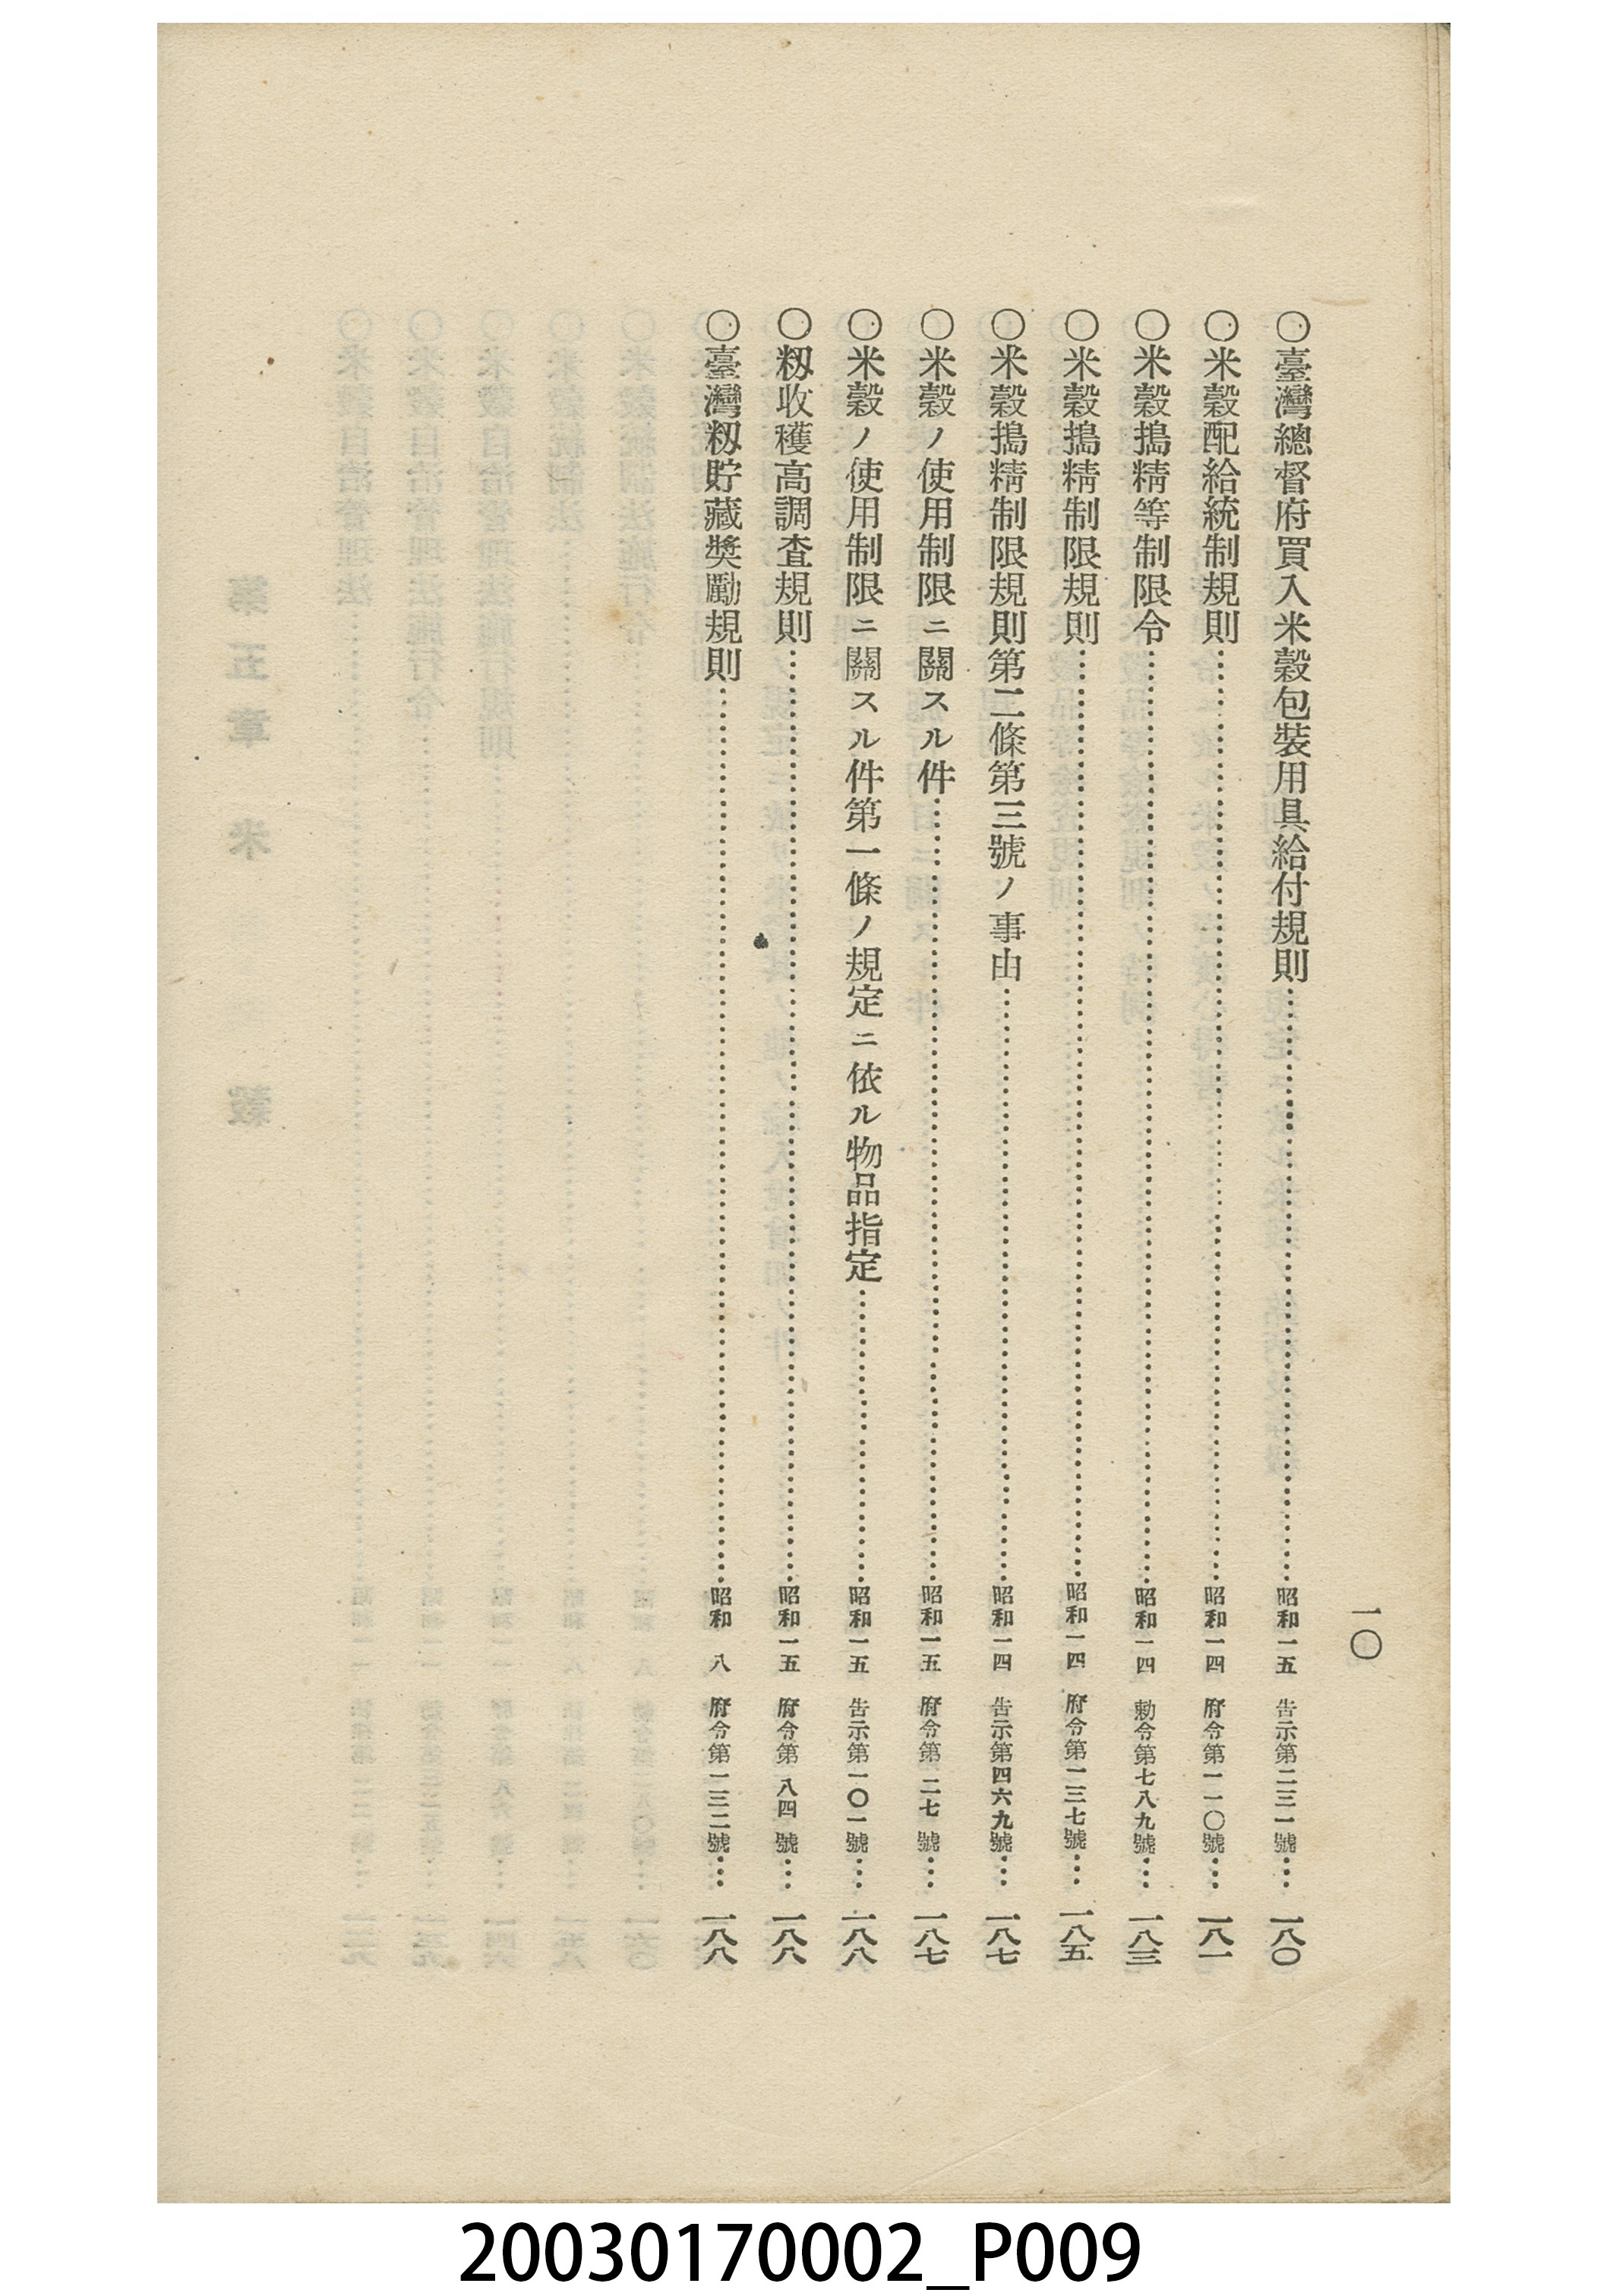 一〇
〇臺灣總督府買入米穀包裝用具給付規則……昭和一五 告示第二三一號…一八〇
〇米穀配給統制規則……昭和一四 府令第一一〇號…一八一
〇米穀搗精等制限令……昭和一四 勅令第七八九號…一八三
〇米穀搗精制限規則……昭和一四 府令第一三七號…一八五
〇米穀搗精制限規則第二條第三號ノ事由……昭和一四 告示第四六九號…一八七
〇米穀ノ使用制限ニ關スル件……昭和一五 府令第二七號…一八七
〇米穀ノ使用制限ニ關スル件第一條ノ規定ニ依ル物品指定……昭和一五 告示第一〇一號…一八八
〇籾收穫高調査規則……昭和一五 府令第八四號…一八八
〇臺灣籾貯藏奬勵規則……昭和八 府令第一三二號…一八八
20030170002_P009